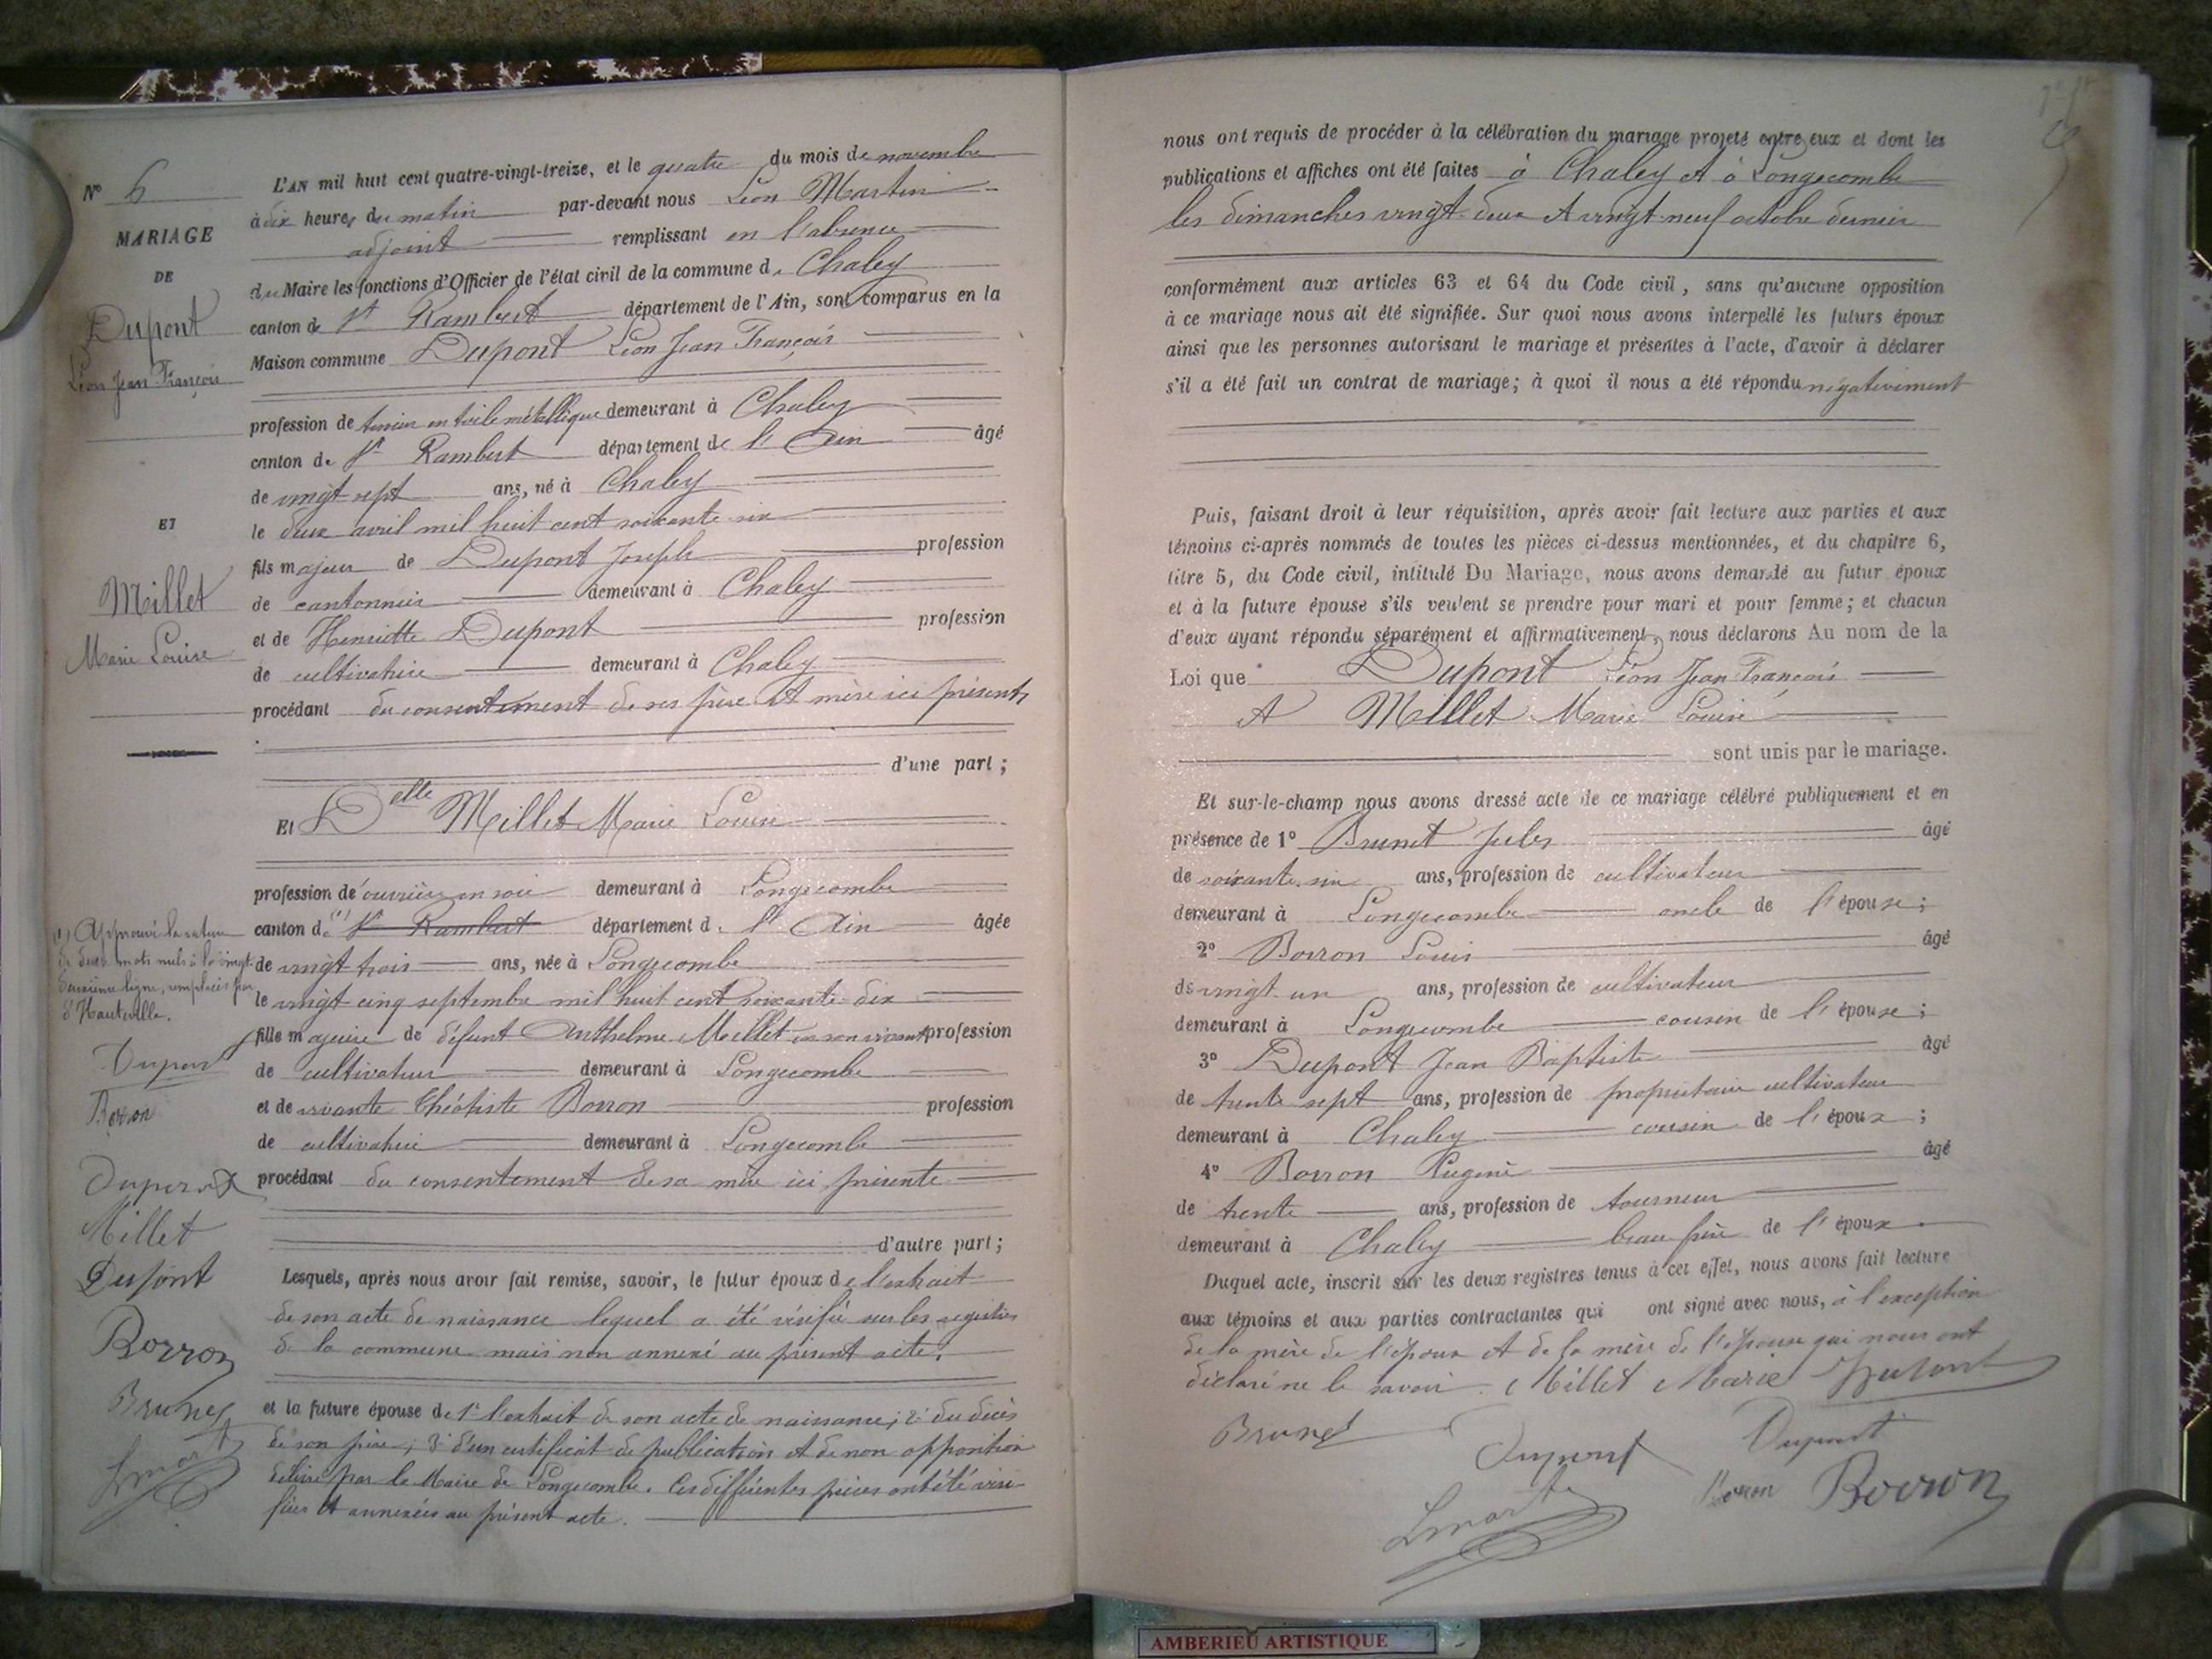 N° 6
MARIAGE
DE
Dupont
Léon Jean François
ET
Millet
Marie Louise
(1) Approuvé la rature
de deux mots nuls à la vingt-
deuxième ligne, remplacés par
d'Hauteville.
Dupont
Borron
Dupont
Millet
Dupont
Borron
Brunet
Lmart
L'AN mil huit cent quatre-vingt-treize, et le quatre du mois de novembre
à dix heures du matin par-devant nous Léon Martin
adjoint remplissant en l'absence
du Maire les fonctions d'Officier de l'état civil de la commune d. Chaley
canton de St Rambert département de l'Ain, sont comparus en la
Maison commune Dupont Léon Jean François
profession de tisseur en toile métallique demeurant à Chaley
canton de St Rambert département de l'Ain âgé
de vingt-sept ans, né à Chaley
le deux avril mil huit cent soixante-six
fils majeur de Dupont Joseph profession
de cantonnier demeurant à Chaley
et de Henriette Dupont profession
de cultivatrice demeurant à Chaley
procédant du consentement de ses père et mère ici présents
d'une part ;
Et Delle Millet Marie Louise
profession de ouvrière en soie demeurant à Longecombe
canton de (1) St Rambert département d. l'Ain âgée
de vingt-trois ans, née à Longecombe
le vingt cinq septembre mil huit cent soixante-dix
fille majeure de défunt Anthelme Millet en son vivant profession
de cultivateur demeurant à Longecombe
et de vivante Théotiste Borron profession
de cultivatrice demeurant à Longecombe
procédant du consentement de sa mère ici présente
d'autre part ;
Lesquels, après nous avoir fait remise, savoir, le futur époux de l'extrait
de son acte de naissance lequel a été vérifié sur les registres
de la commune mais non annexé au présent acte.
et la future épouse de 1° l'extrait de son acte de naissance ; 2° du décès
de son père ; 3° d'un certificat de publication et de non opposition
délivré par le Maire de Longecombe. Ces différentes pièces ont été véri-
fiées et annexées au présent acte.
nous ont requis de procéder à la célébration du mariage projeté entre eux et dont les
publications et affiches ont été faites à Chaley et à Longecombe
les dimanches vingt-deux et vingt-neuf octobre dernier
conformément aux articles 63 et 64 du Code civil, sans qu'aucune opposition
à ce mariage nous ait été signifiée. Sur quoi nous avons interpellé les futurs époux
ainsi que les personnes autorisant le mariage et présentes à l'acte, d'avoir à déclarer
s'il a été fait un contrat de mariage ; à quoi il nous a été répondu négativement
Puis, faisant droit à leur réquisition, après avoir fait lecture aux parties et aux
témoins ci-après nommés de toutes les pièces ci-dessus mentionnées, et du chapitre 6,
titre 5, du Code civil, intitulé Du Mariage, nous avons demandé au futur époux
et à la future épouse s'ils veulent se prendre pour mari et pour femme ; et chacun
d'eux ayant répondu séparément et affirmativement, nous déclarons Au nom de la
Loi que Dupont Léon Jean François
et Millet Marie Louise
sont unis par le mariage.
Et sur-le-champ nous avons dressé acte de ce mariage célébré publiquement et en
présence de 1° Brunet Jules âgé
de soixante-six ans, profession de cultivateur
demeurant à Longecombe oncle de l'épouse ;
2° Borron Louis âgé
de vingt-un ans, profession de cultivateur
demeurant à Longecombe cousin de l'épouse ;
3° Dupont Jean Baptiste âgé
de trente-sept ans, profession de propriétaire cultivateur
demeurant à Chaley cousin de l'époux ;
4° Borron Eugène âgé
de trente ans, profession de tourneur
demeurant à Chaley beau-frère de l'époux.
Duquel acte, inscrit sur les deux registres tenus à cet effet, nous avons fait lecture
aux témoins et aux parties contractantes qui ont signé avec nous, à l'exception
de la mère de l'époux et de la mère de l'épouse qui nous ont
déclaré ne le savoir. Millet Marie Dupont
Brunet Dupont Dupont
Lmart Borron Borron
AMBERIEU ARTISTIQUE